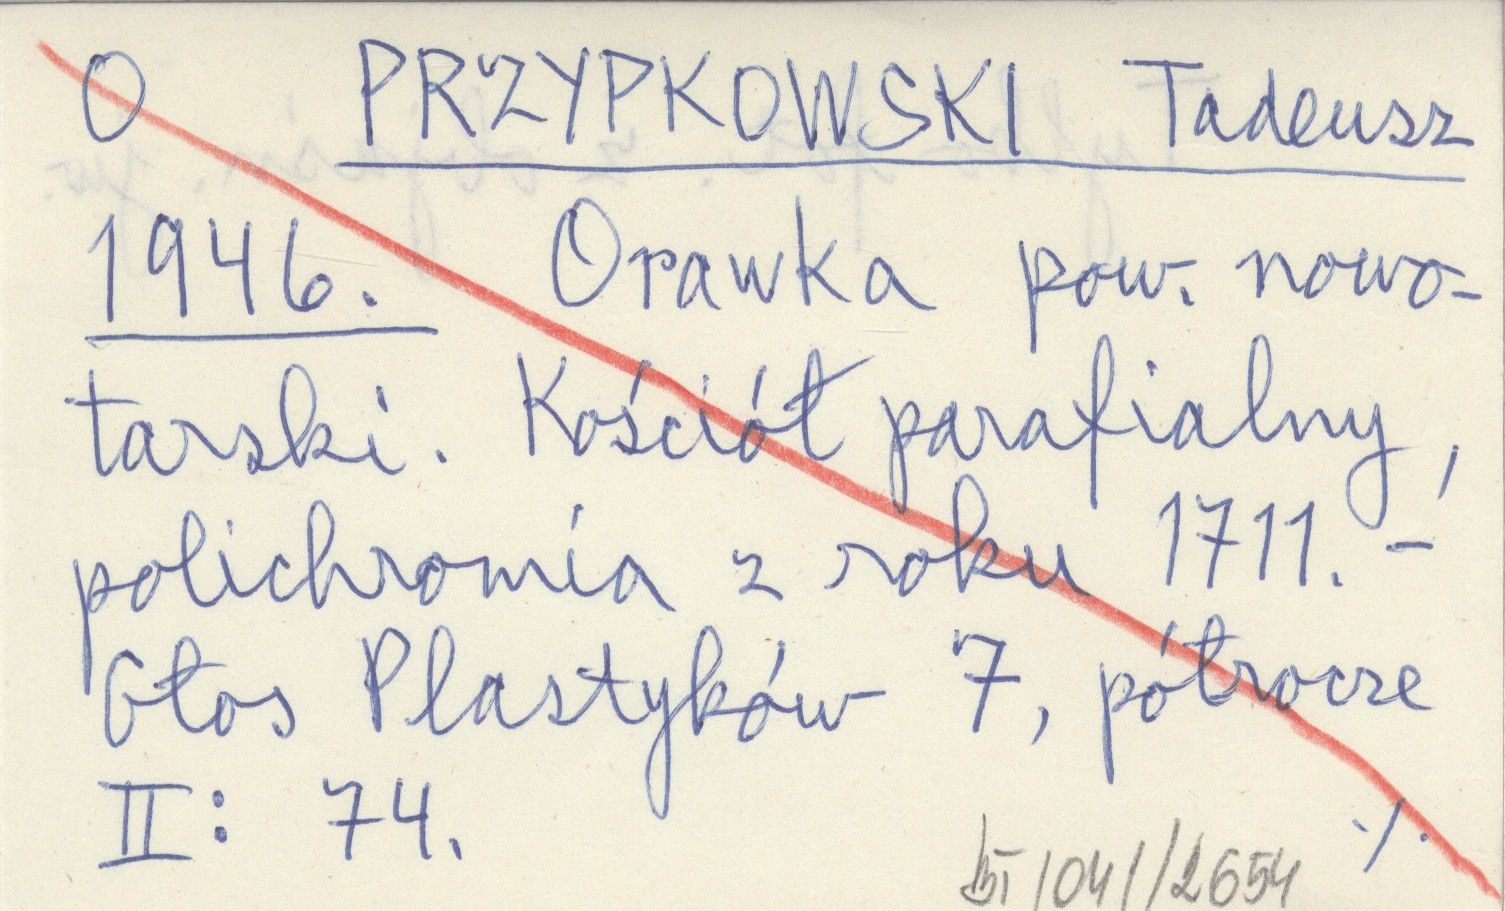 O PRZYPKOWSKI Tadeusz
1946. Orawka pow. nowo-
tarski. Kościół parafialny,
polichromia z roku 1711. -
Głos Plastyków 7, półrocze
II: 74.
./.
/041/2654